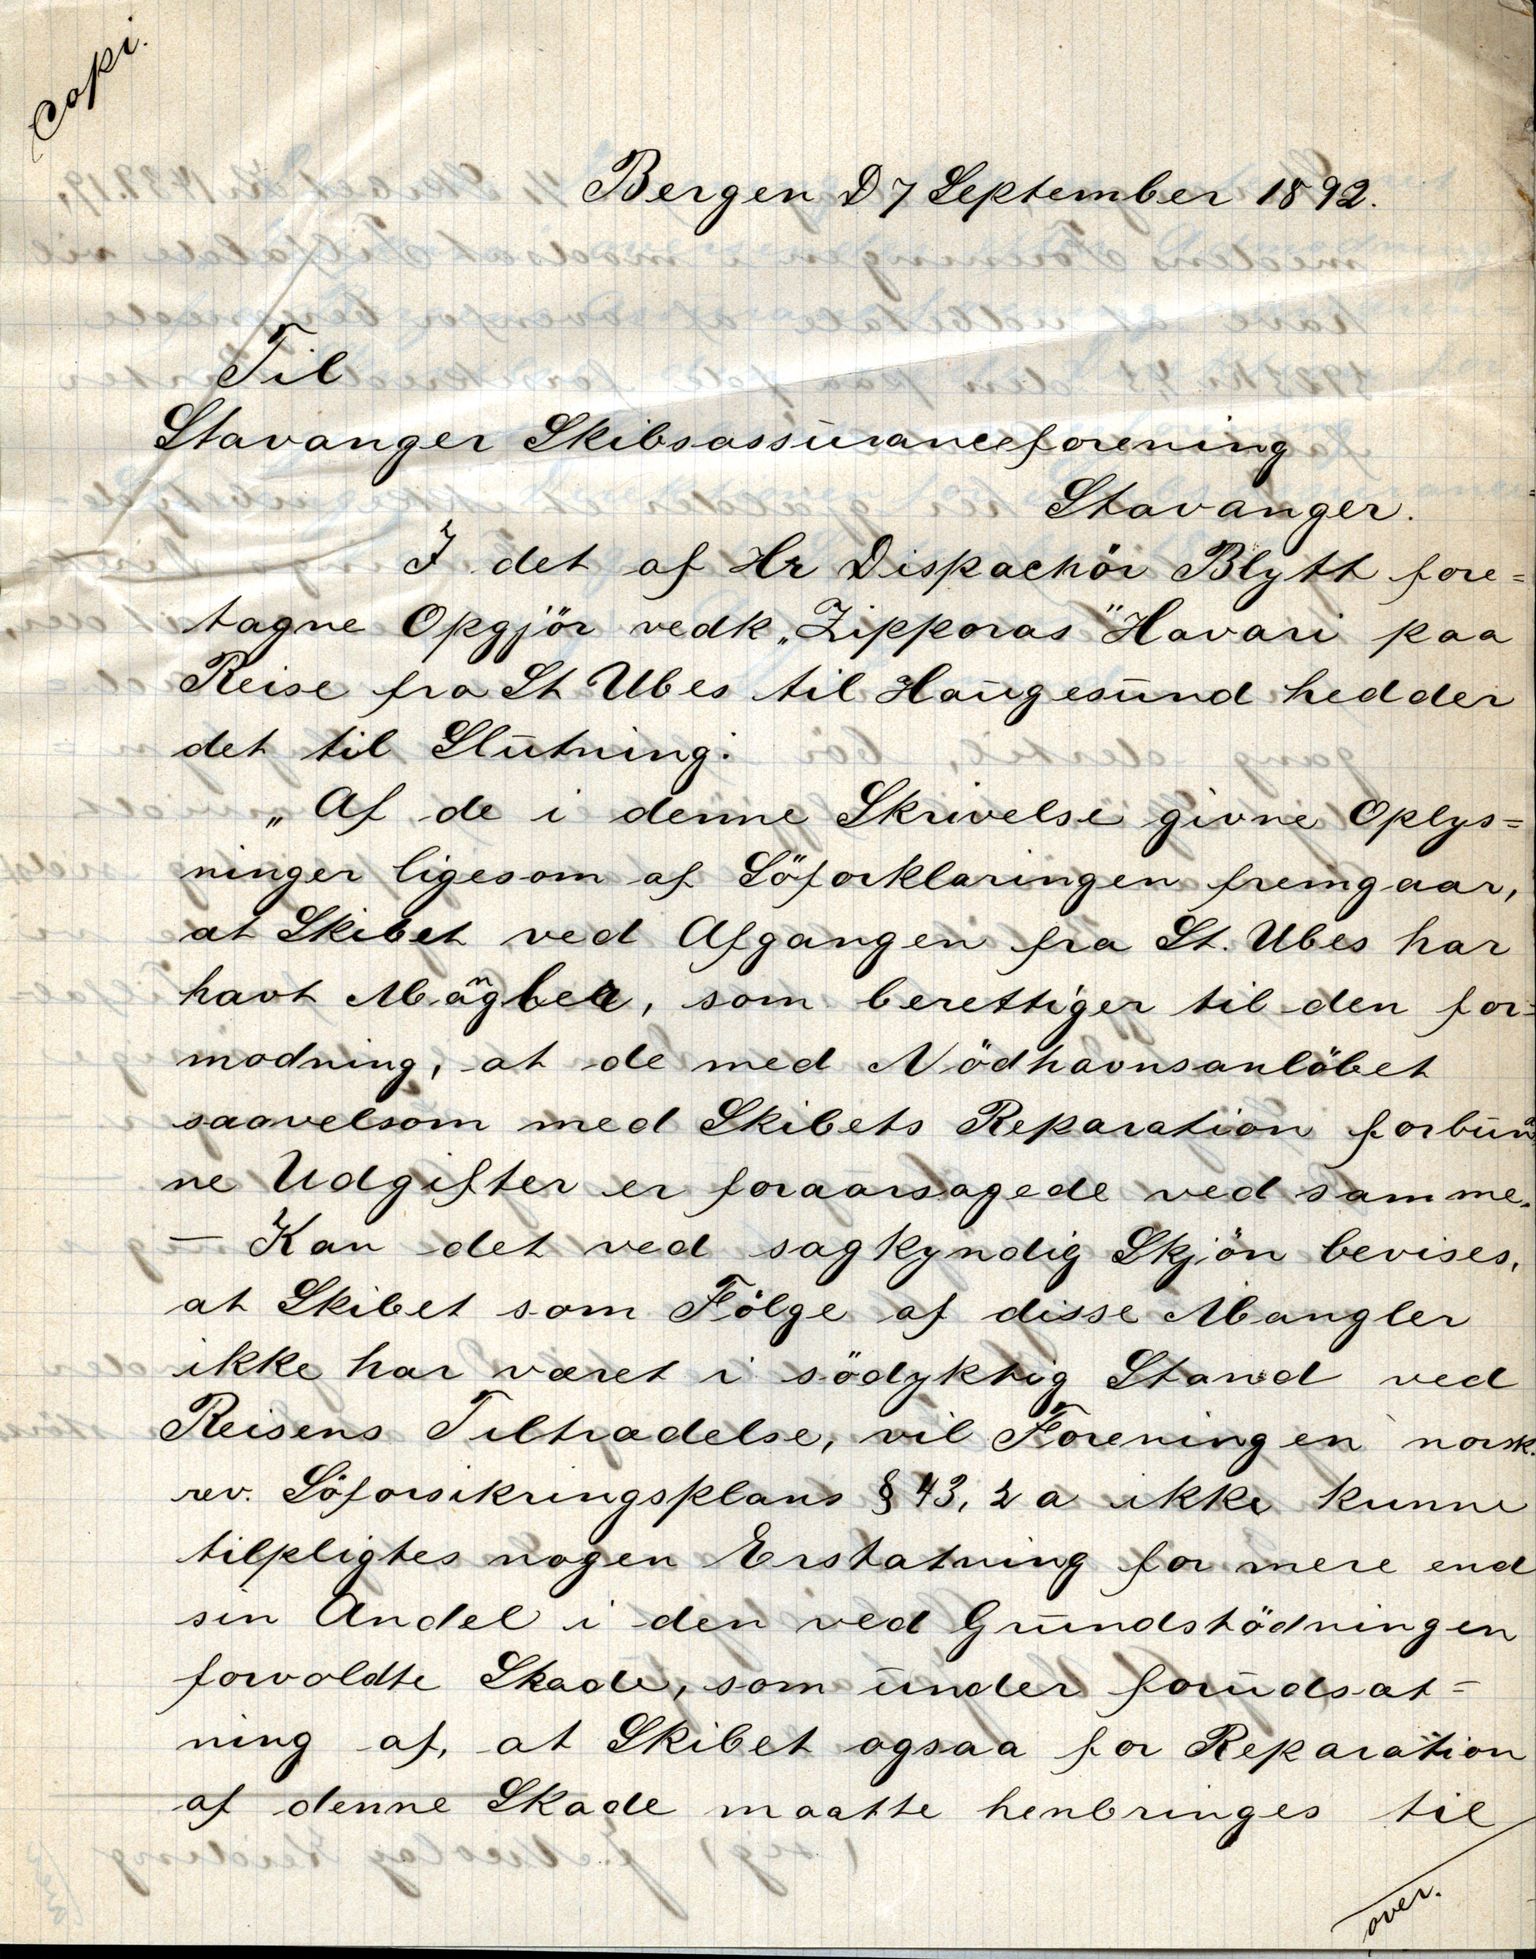 Copi.
Bergen D 7 September 1892.
Til
Stavanger Skibsassuranceforening
Stavanger.
I det af Hr Dispachör Blytt fore=
tagne Opgjör vedk. „Zipporas" Havari paa
Reise fra St Ubes til Haugesund hedder
det til Slutning:
„Af de i denne Skrivelse givne Oplys=
ninger ligesom af Söforklaringen fremgaar,
at Skibet ved Afgangen fra St. Ubes har
havt Mägler, som berettiger til den for=
modning, at de med Nödhavnsanlöbet
saavelsom med Skibets Reparation forbund
ne Udgifter er foraarsagede ved samme.
— Kan det ved sagkyndig Skjön bevises,
at Skibet som Fölge af disse Mangler
ikke har været i södyktig Stand ved
Reisens Tiltradelse, vil Foreningen norsk.
rev. Söforsikringsplans § 43, 2 a ikke kunne
tilpligtes nogen Erstatning for mere end
sin Andel i den ved Grundstödningen
forvoldte Skade, som under forudsat=
ning af, at Skibet ogsaa for Reparation
af denne Skade maatte henbringes til
over.